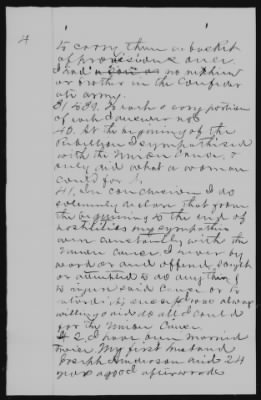 4
to carry them a bucket
of provisions over.
I had no nephew
or brother in the Confeder
ate army.
to each & every portion
of each I answer no
40. At the beginning of the
Rebellion I sympathised
with the Union Cause, &
only did what a woman
could for
41, In conclusion I do
solemnly declare that from
the beginning to the end of
hostilities my sympathies
were constantly with the
Union Cause. I never by
word or deed offend, sought
or attempted to do anything
to injure said Cause or to
always
willing and do all I could
for the Union Cause.
42, I have been married
twice. My first husband
Joseph Anderson died 24
years ago & afterwards